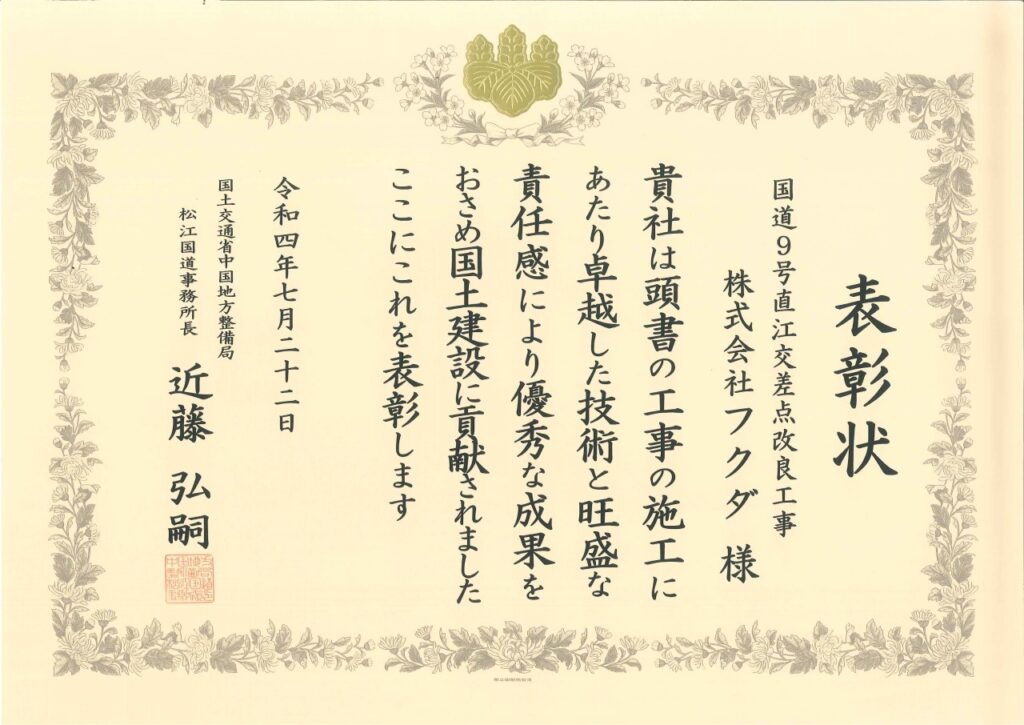 表彰状
国道9号直江交差点改良工事
株式会社フクダ 様
貴社は頭書の工事の施工に
あたり卓越した技術と旺盛な
責任感により優秀な成果を
おさめ国土建設に貢献されました
ここにこれを表彰します
令和四年七月二十二日
国土交通省中国地方整備局
松江国道事務所長
近藤 弘嗣